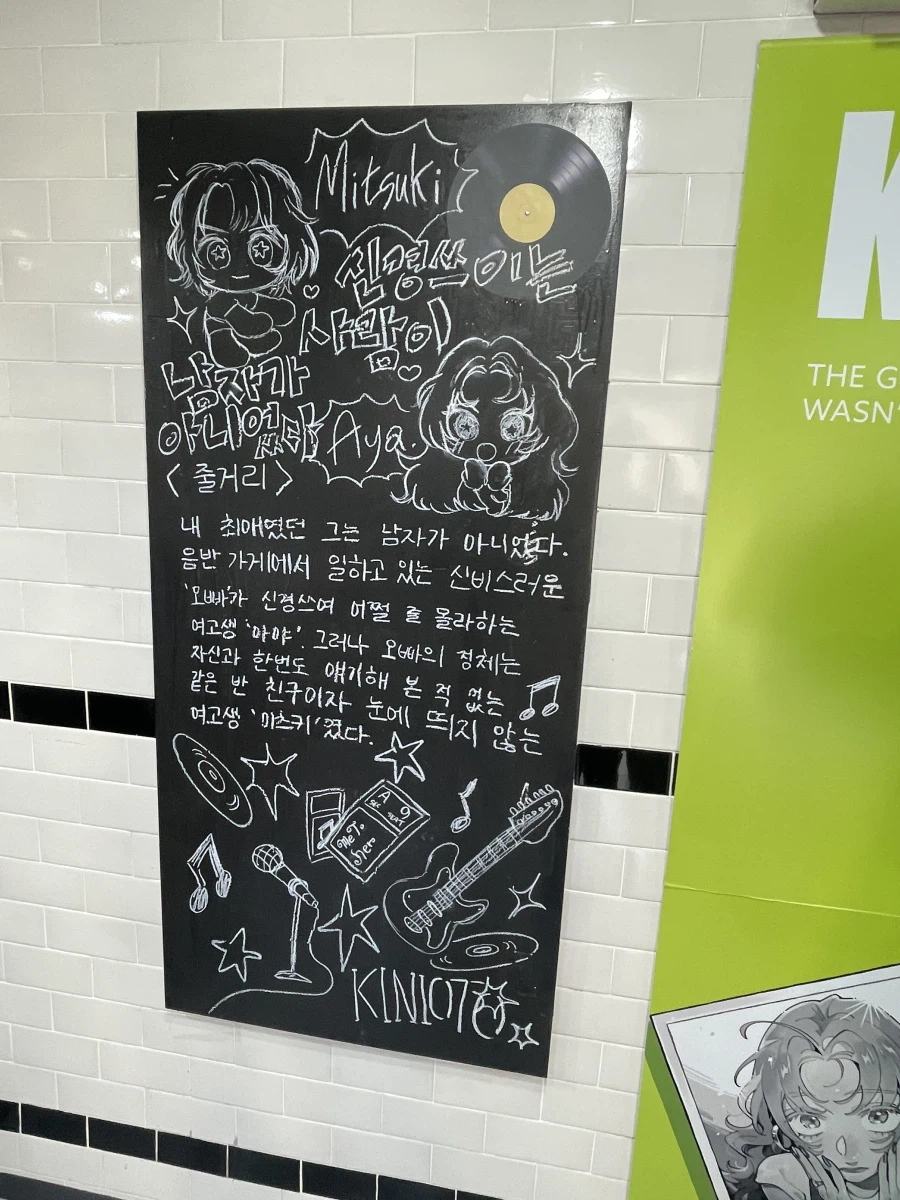 Mitsuki
신경쓰이는
사람이
남자가
아니었다
Aya.
<줄거리>
내 최애였던 그는 남자가 아니었다.
음반 가게에서 일하고 있는 신비스러운
'오빠'가 신경쓰여 어쩔 줄 몰라하는
여고생 '아야'. 그러나 오빠의 정체는
자신과 한번도 얘기해 본 적 없는
같은 반 친구이자 눈에 띄지 않는
여고생 '미츠키'였다.
A 9
Me To
Her
KINIO78
K
THE G
WASN'